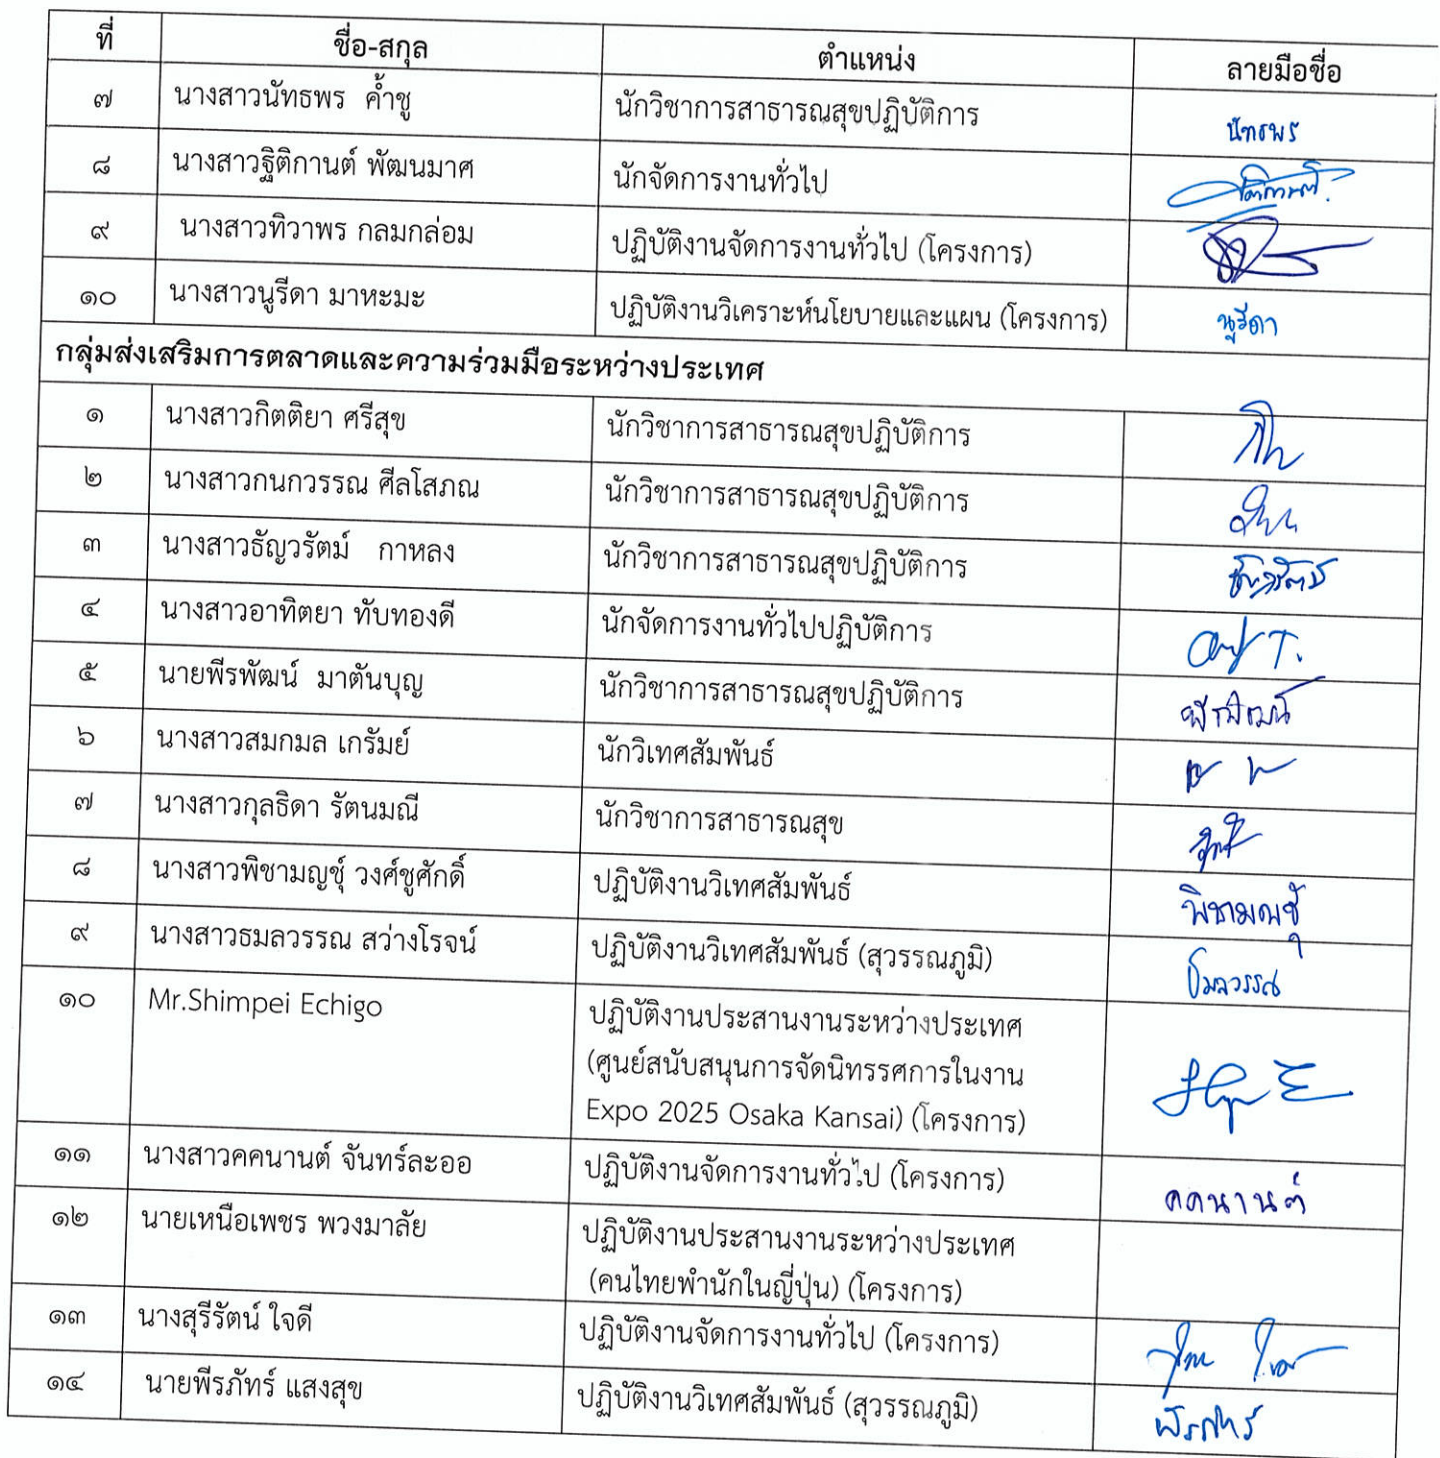 ที่ ชื่อ-สกุล ตำแหน่ง ลายมือชื่อ
๗ นางสาวนัทธพร ค้ำชู นักวิชาการสาธารณสุขปฏิบัติการ นัทธพร
๘ นางสาวฐิติกานต์ พัฒนมาศ นักจัดการงานทั่วไป
๙ นางสาวทิวาพร กลมกล่อม ปฏิบัติงานจัดการงานทั่วไป (โครงการ)
๑๐ นางสาวนูรีดา มาหะมะ ปฏิบัติงานวิเคราะห์นโยบายและแผน (โครงการ) นูรีดา
กลุ่มส่งเสริมการตลาดและความร่วมมือระหว่างประเทศ
๑ นางสาวกิตติยา ศรีสุข นักวิชาการสาธารณสุขปฏิบัติการ
๒ นางสาวกนกวรรณ ศีลโสภณ นักวิชาการสาธารณสุขปฏิบัติการ
๓ นางสาวธัญวรัตม์ กาหลง นักวิชาการสาธารณสุขปฏิบัติการ ธัญวรัตม์
๔ นางสาวอาทิตยา ทับทองดี นักจัดการงานทั่วไปปฏิบัติการ
๕ นายพีรพัฒน์ มาตันบุญ นักวิชาการสาธารณสุขปฏิบัติการ พีรพัฒน์
๖ นางสาวสมกมล เกรัมย์ นักวิเทศสัมพันธ์
๗ นางสาวกุลธิดา รัตนมณี นักวิชาการสาธารณสุข
๘ นางสาวพิชามญชุ์ วงศ์ชูศักดิ์ ปฏิบัติงานวิเทศสัมพันธ์ พิชามญชุ์
๙ นางสาวธมลวรรณ สว่างโรจน์ ปฏิบัติงานวิเทศสัมพันธ์ (สุวรรณภูมิ) ธมลวรรณ
๑๐ Mr.Shimpei Echigo ปฏิบัติงานประสานงานระหว่างประเทศ
(ศูนย์สนับสนุนการจัดนิทรรศการในงาน
Expo 2025 Osaka Kansai) (โครงการ)
๑๑ นางสาวคคนานต์ จันทร์ละออ ปฏิบัติงานจัดการงานทั่วไป (โครงการ) คคนานต์
๑๒ นายเหนือเพชร พวงมาลัย ปฏิบัติงานประสานงานระหว่างประเทศ
(คนไทยพำนักในญี่ปุ่น) (โครงการ)
๑๓ นางสุรีรัตน์ ใจดี ปฏิบัติงานจัดการงานทั่วไป (โครงการ)
๑๔ นายพีรภัทร์ แสงสุข ปฏิบัติงานวิเทศสัมพันธ์ (สุวรรณภูมิ) พีรภัทร์